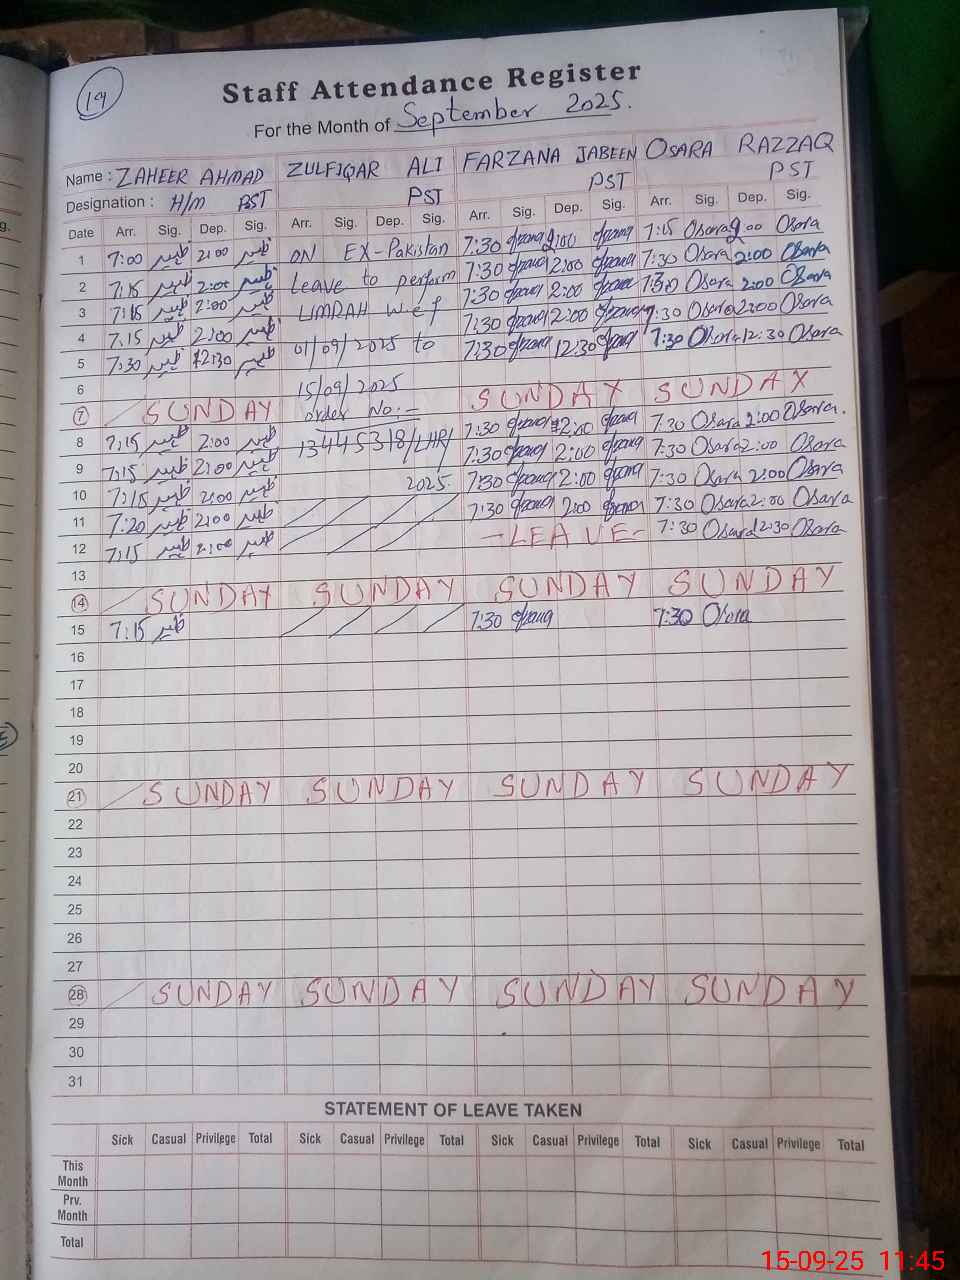 19
Staff Attendance Register
For the Month of September 2025.
Name : ZAHEER AHMAD ZULFIQAR ALI FARZANA JABEEN OSARA RAZZAQ
Designation : H/M PST PST PST PST
Date Arr. Sig. Dep. Sig. Arr. Sig. Dep. Sig. Arr. Sig. Dep. Sig. Arr. Sig. Dep. Sig.
1 7:00 ظہیر 2:00 ظہیر ON EX-Pakistan 7:30 2:00 7:15 Osara 2:00 Osara
2 7:15 ظہیر 2:00 ظہیر Leave to perform 7:30 2:00 7:30 Osara 2:00 Osara
3 7:15 ظہیر 2:00 ظہیر UMRAH w.e.f 7:30 2:00 7:30 Osara 2:00 Osara
4 7:15 ظہیر 2:00 ظہیر 01/09/2025 to 7:30 2:00 7:30 Osara 2:00 Osara
5 7:30 ظہیر 12:30 ظہیر 15/09/2025 7:30 12:30 7:30 Osara 12:30 Osara
6
7 SUNDAY order No:- SUNDAY SUNDAY
8 7:15 ظہیر 2:00 ظہیر 13445318/LHR/ 7:30 2:00 7:30 Osara 2:00 Osara.
9 7:15 ظہیر 2:00 ظہیر 2025. 7:30 2:00 7:30 Osara 2:00 Osara
10 7:15 ظہیر 2:00 ظہیر 7:30 2:00 7:30 Osara 2:00 Osara
11 7:20 ظہیر 2:00 ظہیر 7:30 2:00 7:30 Osara 2:00 Osara
12 7:15 ظہیر 2:00 ظہیر -LEAVE- 7:30 Osara 12:30 Osara
13
14 SUNDAY SUNDAY SUNDAY SUNDAY
15 7:15 ظہیر 7:30 7:30 Osara
16
17
18
19
20
21 SUNDAY SUNDAY SUNDAY SUNDAY
22
23
24
25
26
27
28 SUNDAY SUNDAY SUNDAY SUNDAY
29
30
31
STATEMENT OF LEAVE TAKEN
Sick Casual Privilege Total Sick Casual Privilege Total Sick Casual Privilege Total Sick Casual Privilege Total
This Month
Prv. Month
Total
15-09-25 11:45